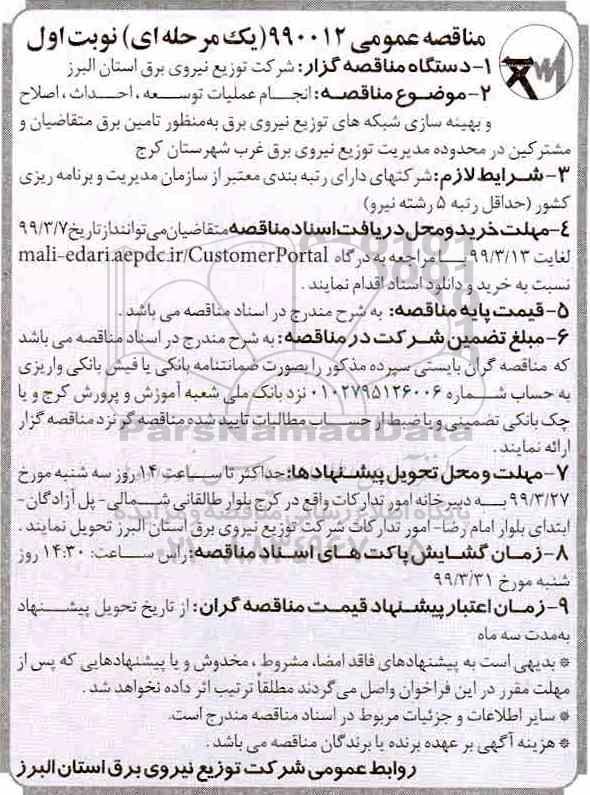 مناقصه عمومی ۹۹۰۰۱۲(یک مرحله ای) نوبت اول
۱-دستگاه مناقصه گزار: شرکت توزیع نیروی برق استان البرز
۲-موضوع مناقصه: انجام عملیات توسعه ، احداث ، اصلاح
و بهینه سازی شبکه های توزیع نیروی برق به‌منظور تامین برق متقاضیان و
مشترکین در محدوده مدیریت توزیع نیروی برق غرب شهرستان کرج
۳- شرایط لازم:شرکتهای دارای رتبه بندی معتبر از سازمان مدیریت و برنامه ریزی
کشور (حداقل رتبه ۵ رشته نیرو)
۴-مهلت خرید و محل دریافت اسناد مناقصه متقاضیان می‌توانند از تاریخ ۹۹/۳/۷
لغایت ۹۹/۳/۱۳ بــا مراجعه به درگاه mali-edari.aepdc.ir/CustomerPortal
نسبت به خرید و دانلود اسناد اقدام نمایند .
۵- قیمت پایه مناقصه: به شرح مندرج در اسناد مناقصه می باشد .
۶- مبلغ تضمین شرکت در مناقصه: به شرح مندرج در اسناد مناقصه می باشد
که مناقصه گران بایستی سپرده مذکور را بصورت ضمانتنامه بانکی یا فیش بانکی واریزی
به حساب شماره ۰۱۰۲۷۹۵۱۲۶۰۰۶ نزد بانک ملی شعبه آموزش و پرورش کرج و یا
چک بانکی تضمینی و یا ضبط از حساب مطالبات تایید شده مناقصه گر نزد مناقصه گزار
ارائه نمایند .
۷- مهلت و محل تحویل پیشنهادها: حداکثر تا ساعت ۱۴ روز سه شنبه مورخ
۹۹/۳/۲۷ بــه دبیرخانه امور تدارکات واقع در کرج بلوار طالقانی شمالی- پل آزادگان-
ابتدای بلوار امام رضا- امور تدارکات شرکت توزیع نیروی برق استان البرز تحویل نمایند .
۸- زمان گشایش پاکت های اسناد مناقصه: راس ساعت: ۱۴:۳۰ روز
شنبه مورخ ۹۹/۳/۳۱
۹- زمان اعتبار پیشنهاد قیمت مناقصه گران: از تاریخ تحویل پیشنهاد
به‌مدت سه ماه
* بدیهی است به پیشنهادهای فاقد امضا، مشروط ، مخدوش و یا پیشنهادهایی که پس از
مهلت مقرر در این فراخوان واصل می‌گردند مطلقاً ترتیب اثر داده نخواهد شد .
* سایر اطلاعات و جزئیات مربوط در اسناد مناقصه مندرج است.
* هزینه آگهی بر عهده برنده یا برندگان مناقصه می باشد .
روابط عمومی شرکت توزیع نیروی برق استان البرز
ParsNamadData